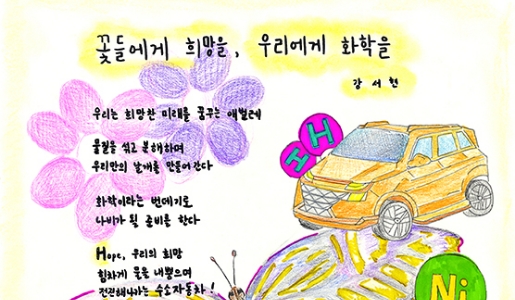 꽃들에게 희망을, 우리에게 화학을
강서현
우리는 희망찬 미래를 꿈꾸는 애벌레
물질을 섞고 분해하며
우리만의 날개를 만들어간다
화학이라는 번데기로
나비가 될 준비를 한다
Hope, 우리의 희망
힘차게 물을 내뿜으며
전진해나가는 수소자동차!
H
H
Ni